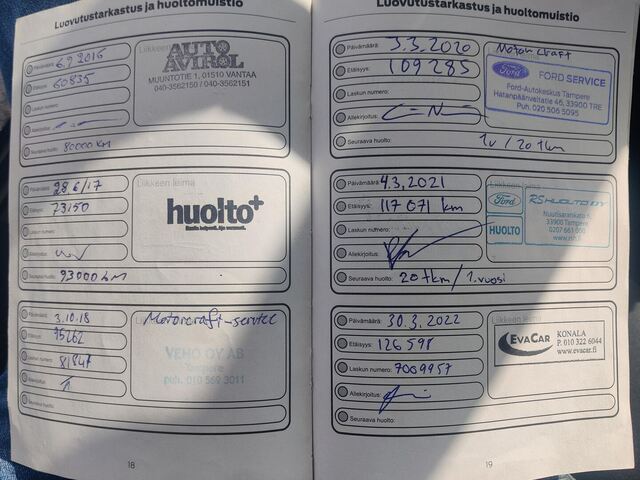 Luovutustarkastus ja huoltomuistio
Päivämäärä: 6.9.2016
Etäisyys: 60835
Laskun numero:
Allekirjoitus:
Seuraava huolto: 80000 KM
Liikkeen
AUTO
AVIROL
MUUNTOTIE 1, 01510 VANTAA
040-3562150 / 040-3562151
Päivämäärä: 28 6/17
Etäisyys: 73150
Laskun numero:
Allekirjoitus:
Seuraava huolto: 93000 KM
Liikkeen leima
huolto+
Päivämäärä: 3.10.18
Etäisyys:
Laskun numero: 81847
Allekirjoitus:
Seuraava huolto:
Motorcraft-service
VEHO OY AB
Tampere
puh. 010 569 3011
18
Luovutustarkastus ja huoltomuistio
Päivämäärä: 3.3.2020
Etäisyys: 109285
Laskun numero:
Allekirjoitus:
Seuraava huolto: 1v / 20 tkm
Motorcraft
Ford
FORD SERVICE
Ford-Autokeskus Tampere
Hatanpäänvaltatie 46, 33900 TRE
Puh. 020 506 5095
Päivämäärä: 4.3.2021
Etäisyys: 117 071 km
Laskun numero:
Allekirjoitus:
Seuraava huolto: 20 tkm / 1. vuosi
Liikkeen leima
Ford
HUOLTO
RS HUOLTO OY
Nuutisarankatu
33900 Tampere
0207 661
Päivämäärä: 30.3.2022
Etäisyys: 126598
Laskun numero: 7009957
Allekirjoitus:
Seuraava huolto:
Liikkeen leima
EVACAR
KONALA
P. 010 322 6044
www.evacar.fi
19